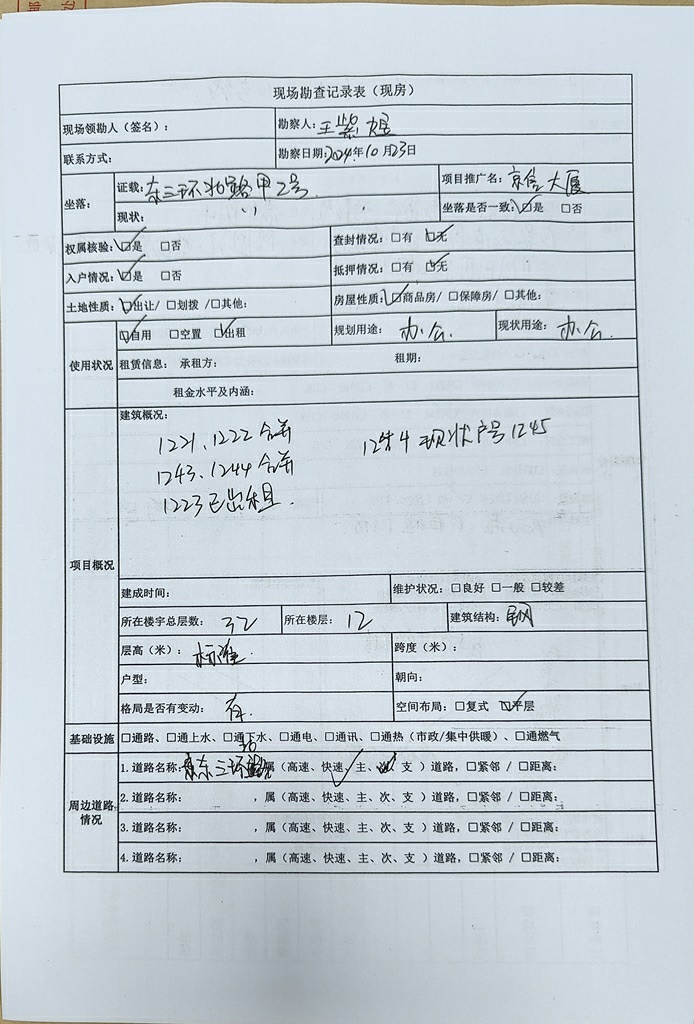 现场勘查记录表（现房）
现场领勘人（签名）： 勘察人：王紫煜
联系方式： 勘察日期：2024年10月23日
坐落： 证载：东三环北路甲2号 项目推广名：京信大厦
现状： 〃 坐落是否一致：☑是 □否
权属核验：☑是 □否 查封情况：□有 ☑无
入户情况：☑是 □否 抵押情况：□有 ☑无
土地性质：☑出让/ □划拨 /□其他： 房屋性质：☑商品房/ □保障房/ □其他：
使用状况 ☑自用 □空置 ☑出租 规划用途： 办公. 现状用途：办公.
租赁信息： 承租方： 租期：
租金水平及内涵：
项目概况 建筑概况：
1221、1222合并
1243、1244合并 现状户号1245
1223已出租.
建成时间： 维护状况：□良好 □一般 □较差
所在楼宇总层数： 32 所在楼层： 12 建筑结构：钢
层高（米）： 标准. 跨度（米）：
户型： 朝向：
格局是否有变动： 有. 空间布局：□复式 ☑平层
基础设施 □通路、□通上水、□通下水、□通电、□通讯、□通热（市政/集中供暖）、□通燃气
周边道路情况 1.道路名称：东三环北路，属（高速、快速、主、次、支 ）道路，□紧邻 / □距离：
2.道路名称： ，属（高速、快速、主、次、支 ）道路，□紧邻 / □距离：
3.道路名称： ，属（高速、快速、主、次、支 ）道路，□紧邻 / □距离：
4.道路名称： ，属（高速、快速、主、次、支 ）道路，□紧邻 / □距离：